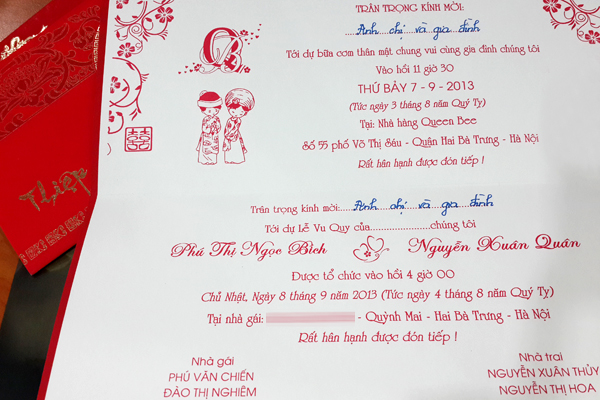 Thiệp
TRÂN TRỌNG KÍNH MỜI:
Anh chị và gia đình
Tới dự bữa cơm thân mật chung vui cùng gia đình chúng tôi
Vào hồi 11 giờ 30
THỨ BẢY 7 - 9 - 2013
(Tức ngày 3 tháng 8 năm Quý Tỵ)
Tại: Nhà hàng Queen Bee
Số 55 phố Võ Thị Sáu - Quận Hai Bà Trưng - Hà Nội
Rất hân hạnh được đón tiếp !
囍
Trân trọng kính mời:....Anh chị và gia đình
Tới dự Lễ Vu Quy của......................chúng tôi
Phú Thị Ngọc Bích Nguyễn Xuân Quân
Được tổ chức vào hồi 4 giờ 00
Chủ Nhật, Ngày 8 tháng 9 năm 2013 (Tức ngày 4 tháng 8 năm Quý Tỵ)
Tại nhà gái: - Quỳnh Mai - Hai Bà Trưng - Hà Nội
Rất hân hạnh được đón tiếp !
Nhà gái Nhà trai
PHÚ VĂN CHIẾN NGUYỄN XUÂN THỦY
ĐÀO THỊ NGHIÊM NGUYỄN THỊ HOA